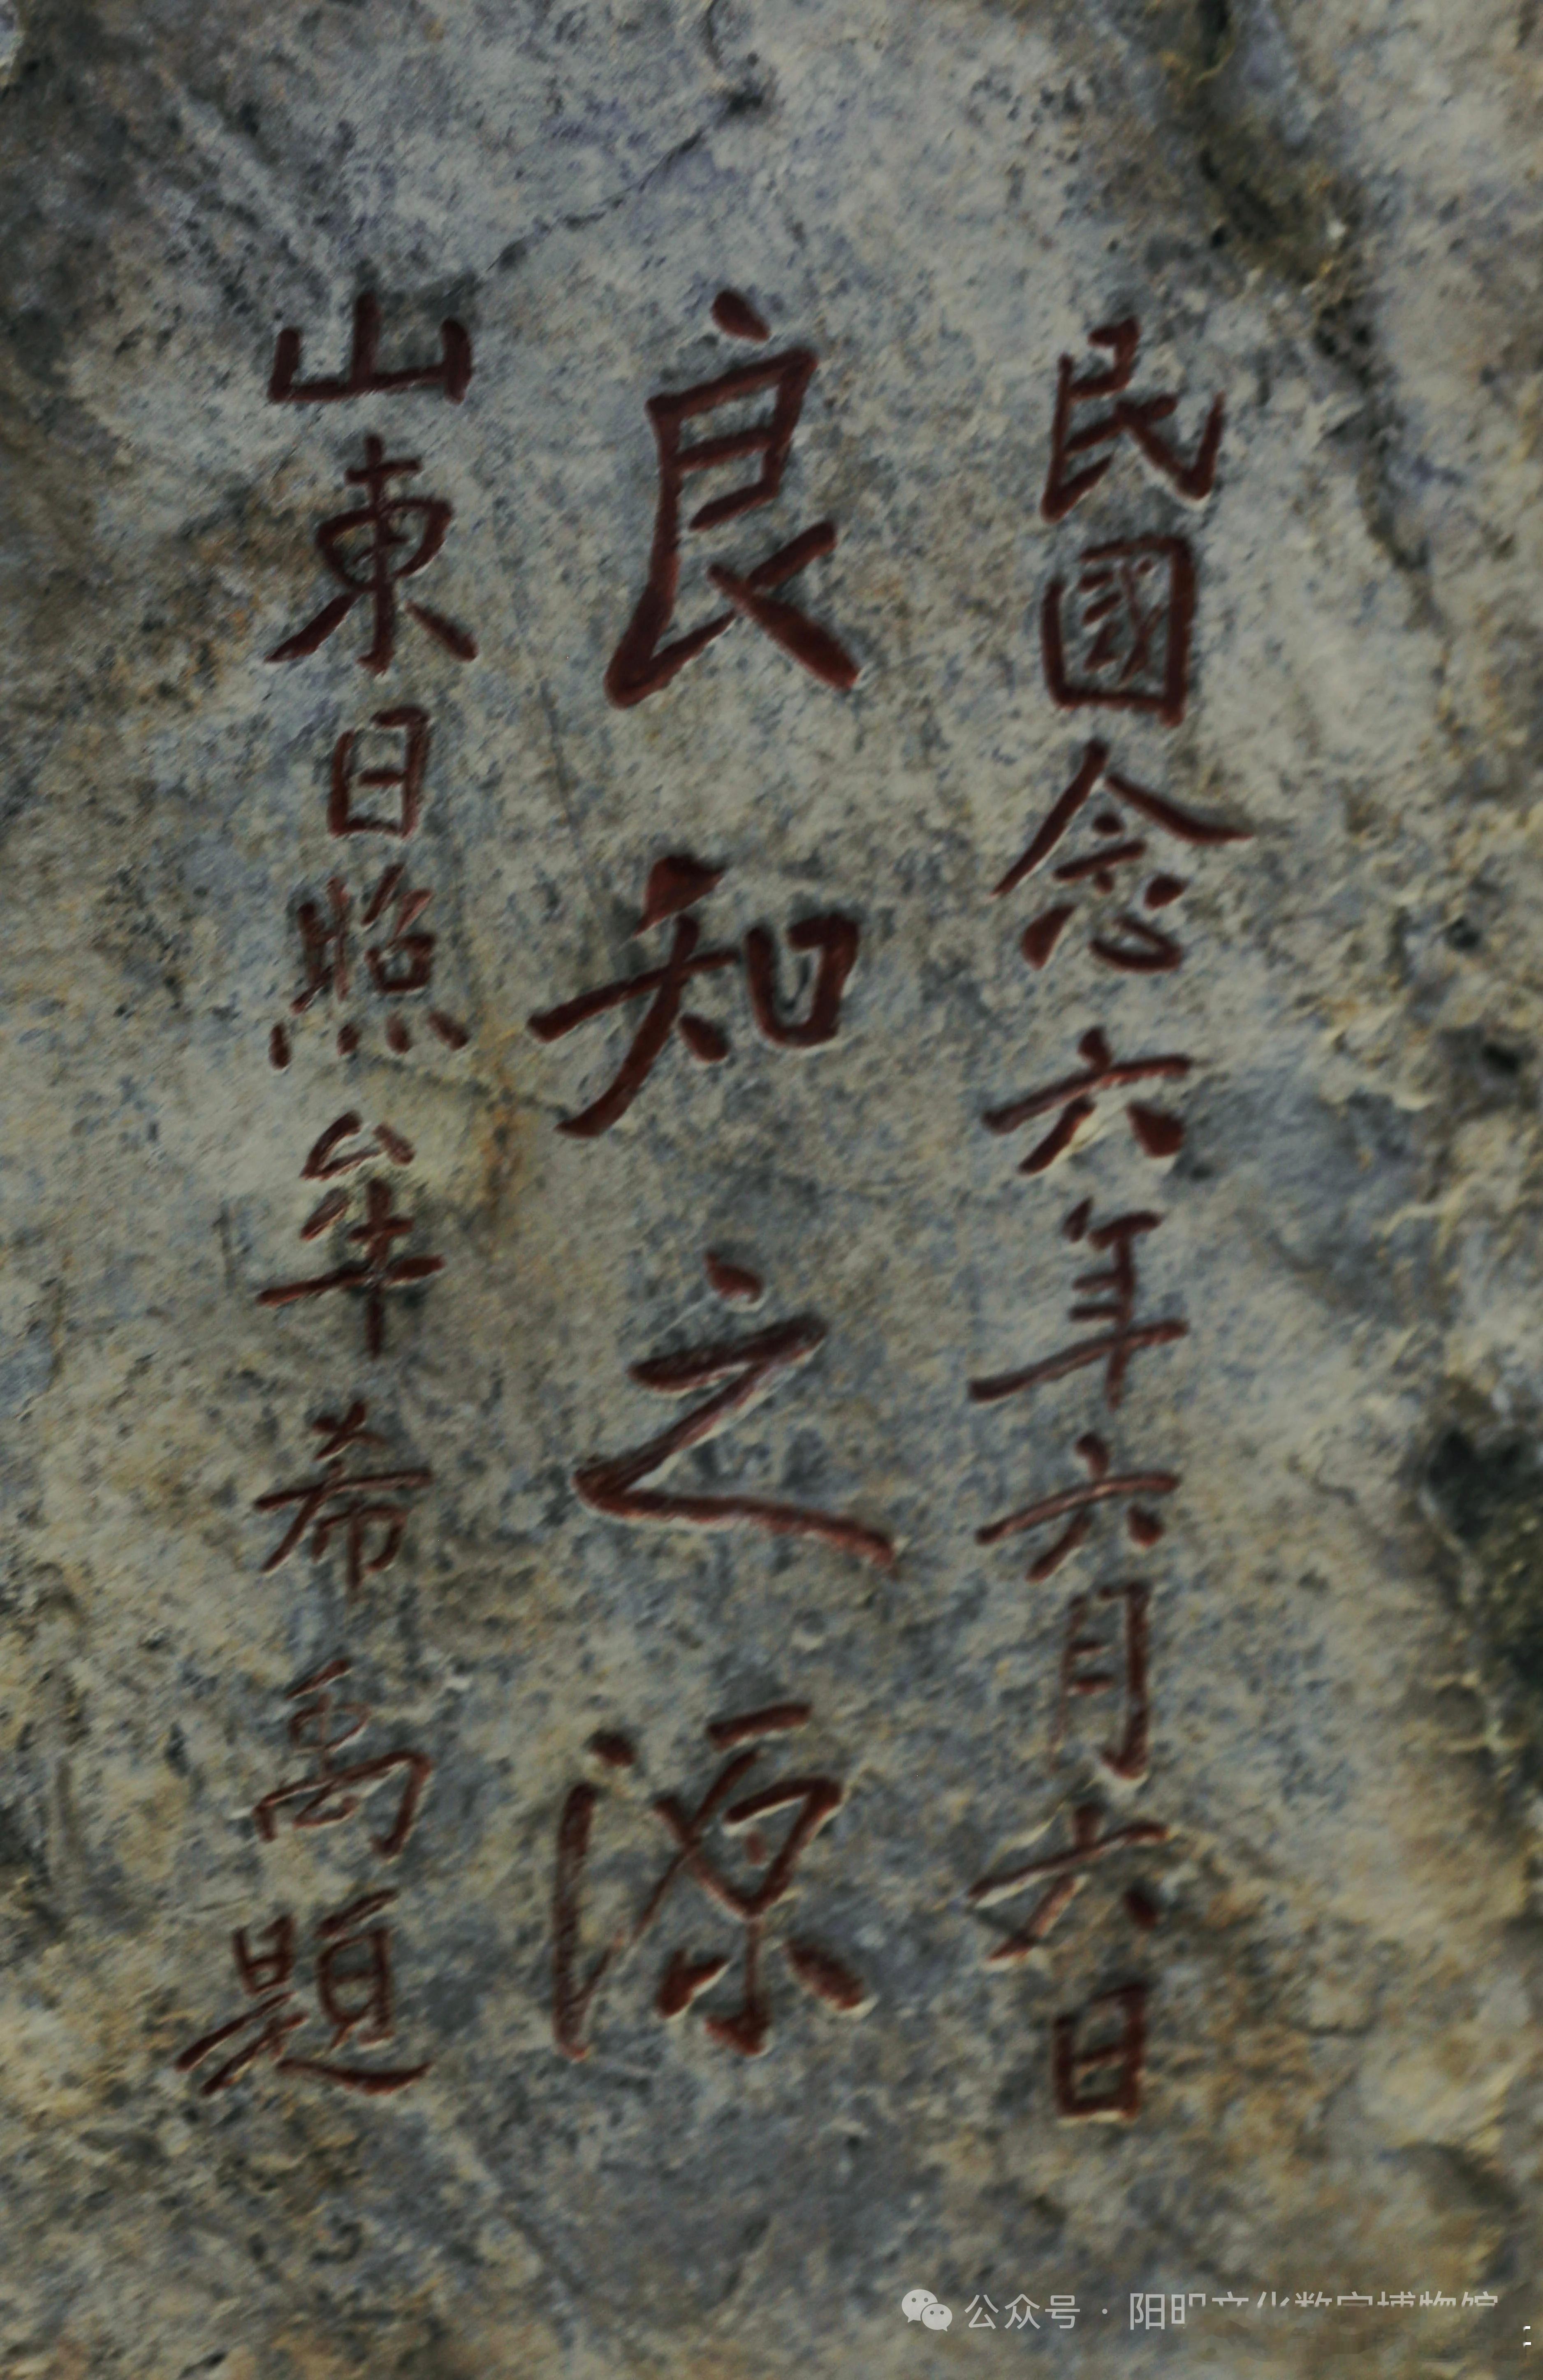 民國念六年六月六日
良知之源
山東日照牟希禹題
公众号 · 阳明文化数字博物馆